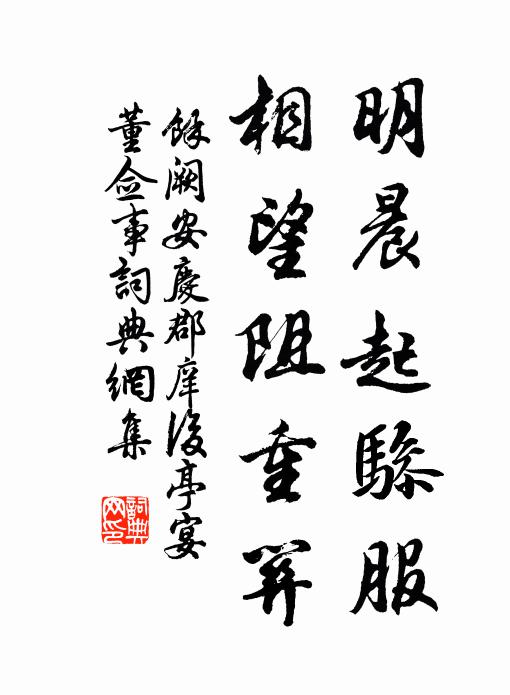 明晨起驂服
相望阻重關
餘闕安慶郡庠後亭宴
董僉事詞典網集
詞典
网印